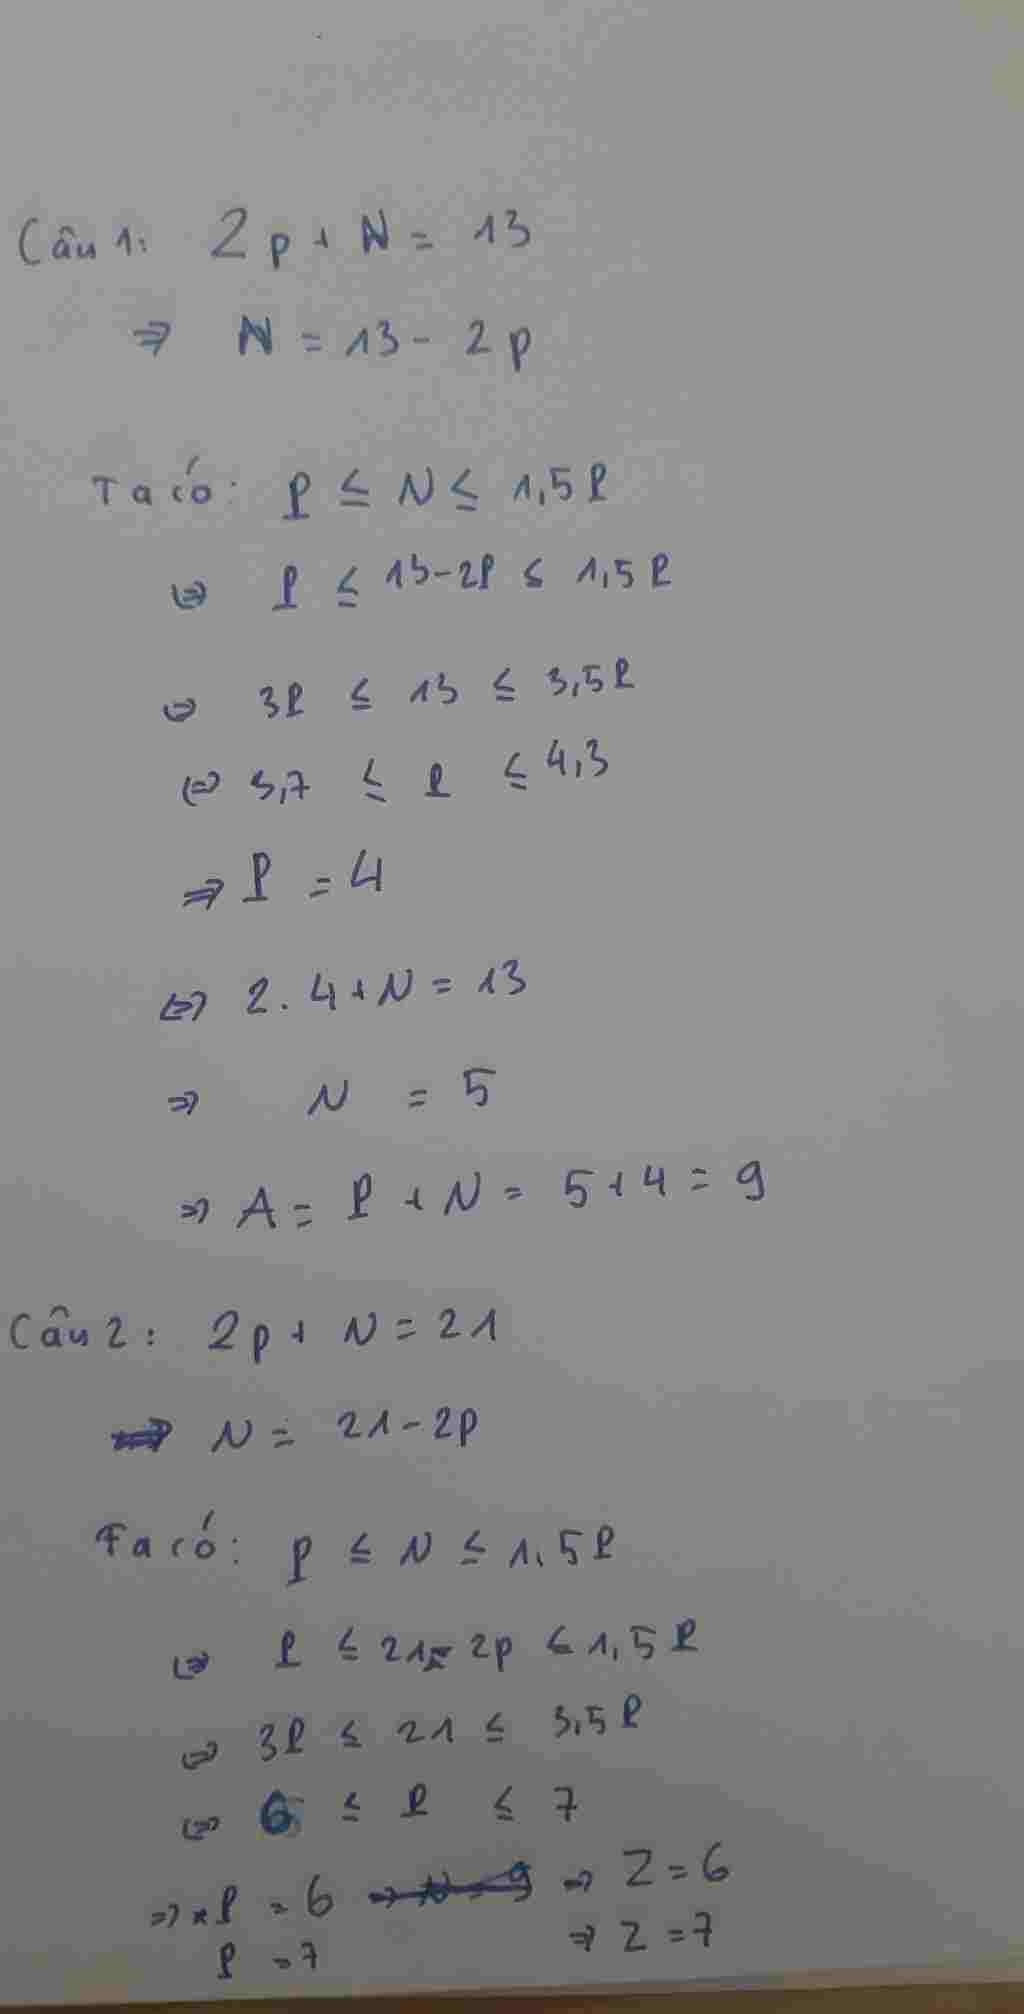 Câu 1: 2p + N = 13
⇒ N = 13 - 2p
Ta có: P ≤ N ≤ 1,5P
⇔ P ≤ 13-2P ≤ 1,5P
⇔ 3P ≤ 13 ≤ 3,5P
⇔ 3,7 ≤ P ≤ 4,3
⇒ P = 4
⇔ 2. 4 + N = 13
⇒ N = 5
⇒ A = P + N = 5 + 4 = 9
Câu 2: 2p + N = 21
⇒ N = 21 - 2p
Ta có: P ≤ N ≤ 1,5P
⇔ P ≤ 21 - 2p ≤ 1,5P
⇔ 3P ≤ 21 ≤ 3,5P
⇔ 6 ≤ P ≤ 7
⇒ * P = 6 ⇒ N = 9 ⇒ Z = 6
P = 7 ⇒ Z = 7